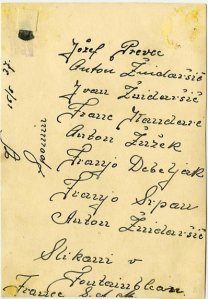 Józef Prevec
Anton Žnidaršič
Ivan Žnidaršič
Franc Mandare
Anton Žužek
Franjo Debeljak
Franjo Span
Anton Žnidaršič
Slikani v
Fontainblau
France
Spomin